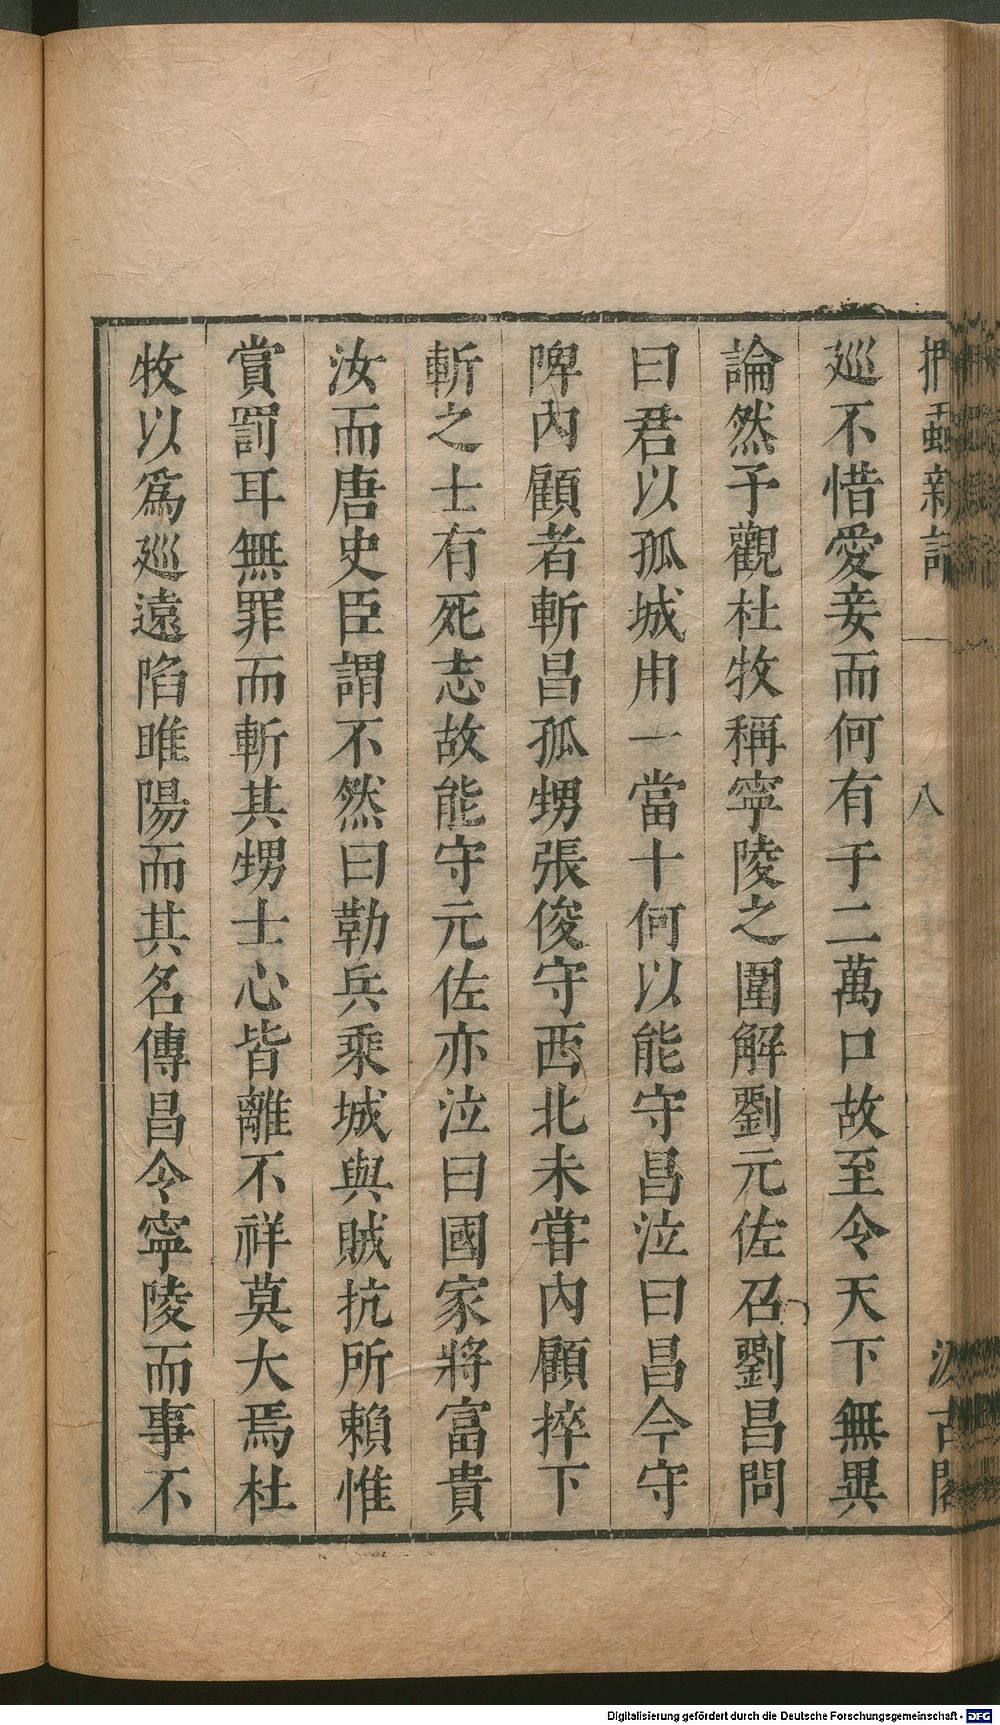 捫蝨新話 八 汲古閣
廵不惜愛妾而何有于二萬口故至令天下無異
論然予觀杜牧稱寧陵之圍解劉元佐召劉昌問
曰君以孤城用一當十何以能守昌泣曰昌令守
陴內顧者斬昌孤甥張俊守西北未甞內顧捽下
斬之士有死志故能守元佐亦泣曰國家將富貴
汝而唐史臣謂不然曰勒兵乘城與賊抗所賴惟
賞罰耳無罪而斬其甥士心皆離不祥莫大焉杜
牧以爲廵遠陷睢陽而其名傳昌令寧陵而事不
Digitalisierung gefördert durch die Deutsche Forschungsgemeinschaft - DFG